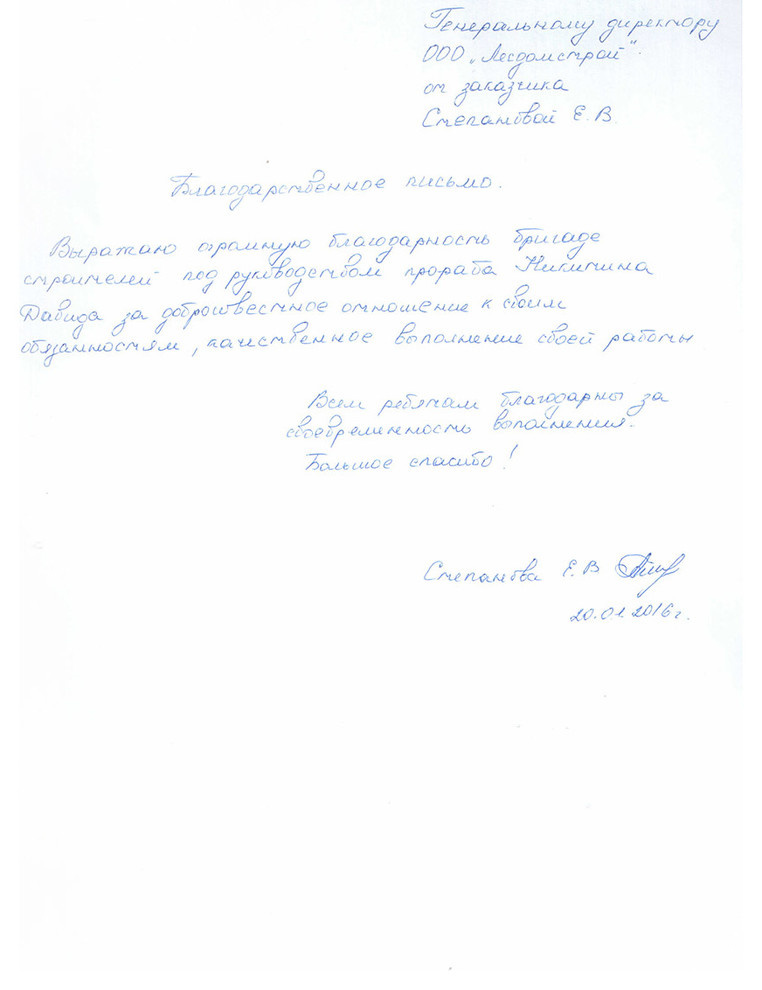 Генеральному директору
ООО „Лесдомстрой".
от заказчика
Степановой Е. В.
Благодарственное письмо.
Выражаю огромную благодарность бригаде
строителей под руководством прораба Никитина
Давида за добросовестное отношение к своим
обязанностям, качественное выполнение своей работы
Всем ребятам благодарны за
своевременность выполнения.
Большое спасибо!
Степанова Е. В
20.01.2016г.